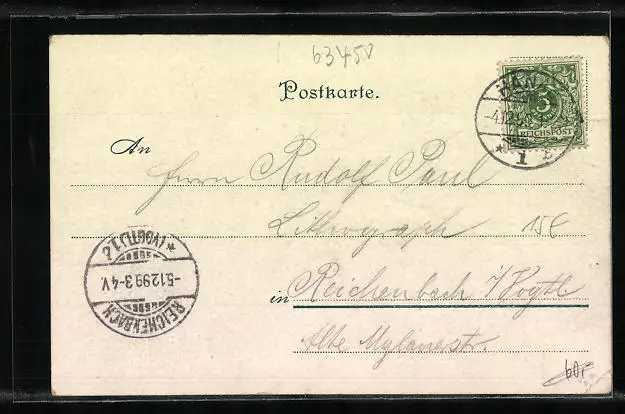 63450
Postkarte.
5
REICHSPOST
-4.12.99
* 1 b
An
Herrn Rudolf Paul
Lithograph 158
in Reichenbach i/Vogtl
Alte Mylauerstr.
* (VOGTL) 1 c
-5.12.99 3-4 V.
REICHENBACH
60,-